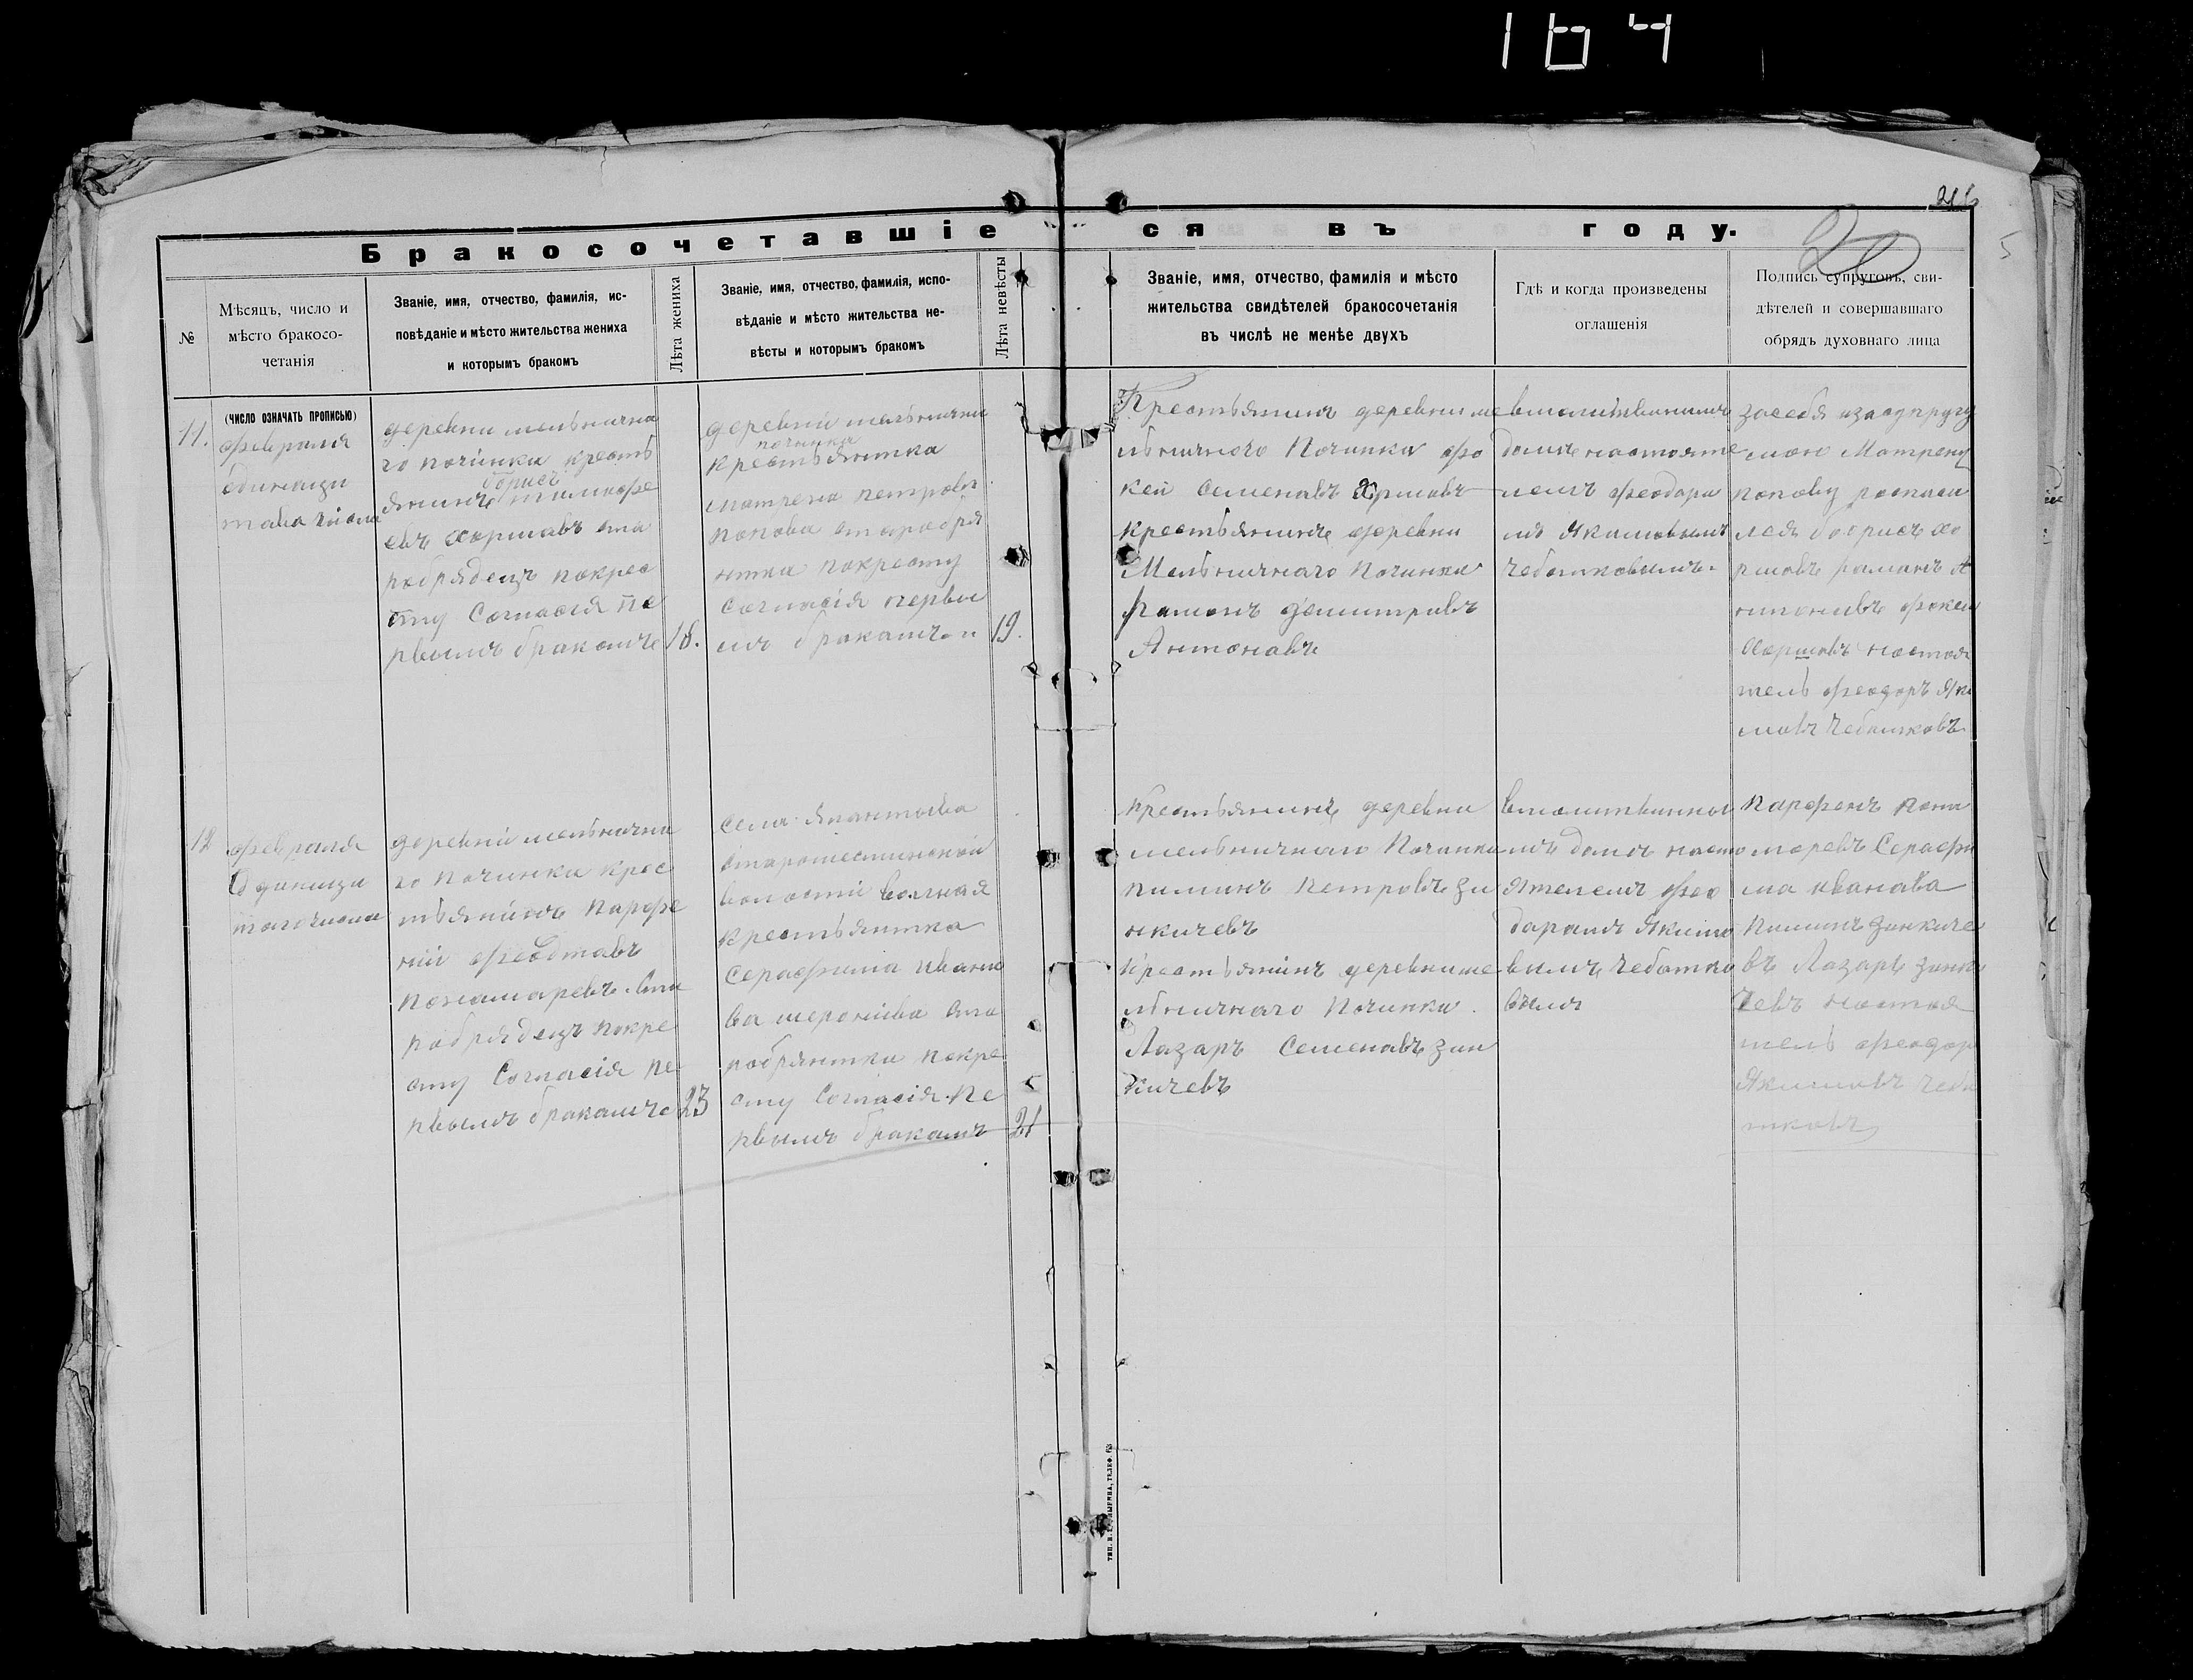 164
216
20
5
Бракосочетавшіеся въ году.
№
Мѣсяцъ, число и
мѣсто бракосо-
четанія
Званіе, имя, отчество, фамилія, ис-
повѣданіе и мѣсто жительства жениха
и которымъ бракомъ
Лѣта жениха
Званіе, имя, отчество, фамилія, испо-
вѣданіе и мѣсто жительства не-
вѣсты и которымъ бракомъ
Лѣта невѣсты
Званіе, имя, отчество, фамилія и мѣсто
жительства свидѣтелей бракосочетанія
въ числѣ не менѣе двухъ
Гдѣ и когда произведены
оглашенія
Подпись супруговъ, сви-
дѣтелей и совершавшаго
обрядъ духовнаго лица
(число означать прописью)
11.
февраля
единаца
таго числа
деревни мельнична
го починка крестъ
борись
янинъ тимофе
евъ хоршавъ ста
робрядецъ покрес
ту Согласія пе
рвымъ бракомъ
18.
деревни мельнични
починка
крестьянтка
матрена петрова
попова старобря
нтка покресту
Согласія первы
мъ бракамъ
19.
Крестьянинъ деревни ме
льничного Починка фо
кей Семенавъ Хоршавъ
крестьянинъ деревни
Мельничнаго Починка
Раманъ Демитривъ
Антонавъ
вмолитвинымъ
домѣ настояте
лемъ феодара
мъ Якимовымъ
Чеботковымъ
засебя изасупругу
мою Матрену
попову роспаси
лся боорисъ хо
ршавъ раманъ А
нтонивъ фокей
Хоршавъ настоя
тель феодоръ Яки
мавъ Чебатковъ
12
февраля
Одинаца
тагочисла
деревни мельнична
го починка Крес
тьянинъ Парфе
ний федотавъ
понамаревъ. Ста
робрядецъ покре
сту Согласія пе
рвымъ бракамъ
23
села Янантыва
Старошестинской
волости
крестьянтка
Серафима ивано
ва миронива Ста
робрянтки покре
сту Согласія. пе
рвымъ бракамъ
21
Крестьянинъ деревни
мельничнаго Починка
пиминъ петровъ зи
нкичевъ
Крестьянинъ деревни ме
льничнаго Починка.
Лазаръ Семенавъ зин
кичевъ
вмолитвинно
мъ домѣ насто
ятелемъ фео
дарамъ Якимо
вымъ чебатко
вымъ
парфенъ пона
моревъ Серафи
ма иванава
пиминъ зинкиче
въ Лазаръ зинки
чевъ настоя
тель феодор
Якимовъ чеба
тковъ